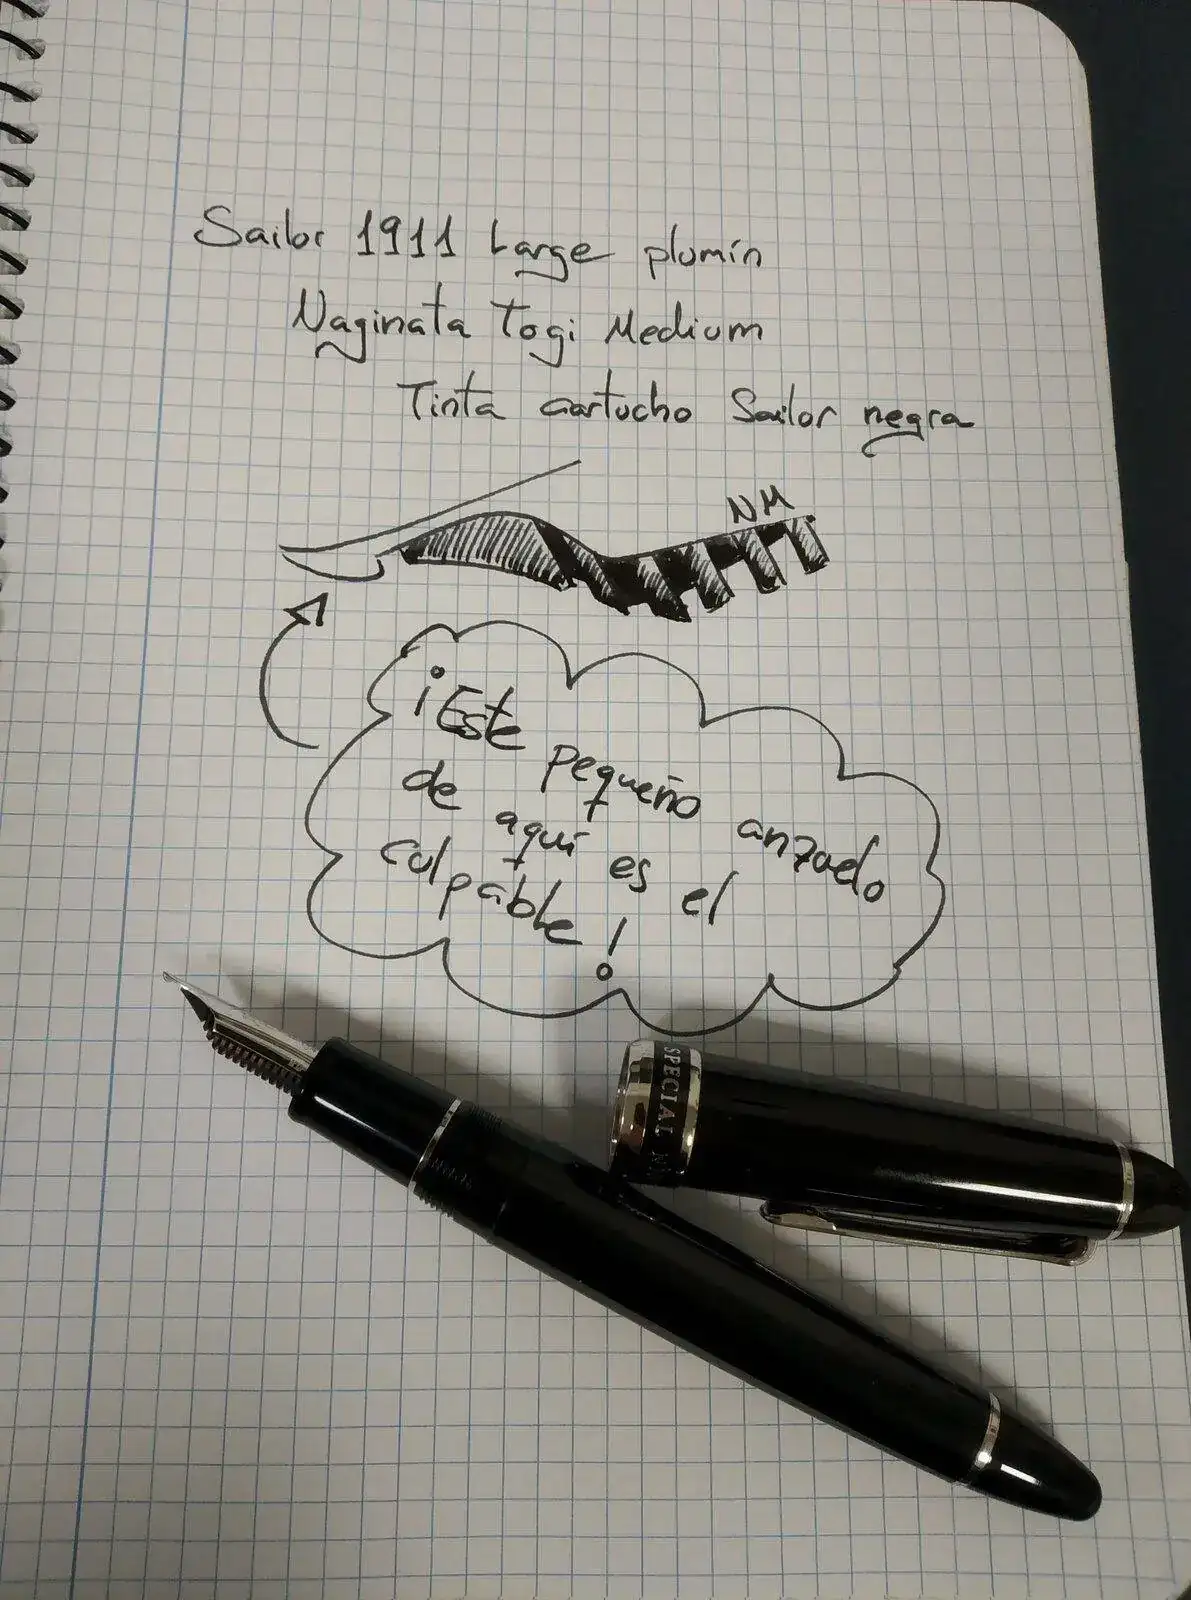 Sailor 1911 Large plumín
Naginata Togi Medium
Tinta cartucho Sailor negra
NM
¡Este pequeño anzuelo
de aquí es el
culpable!
SPECIAL